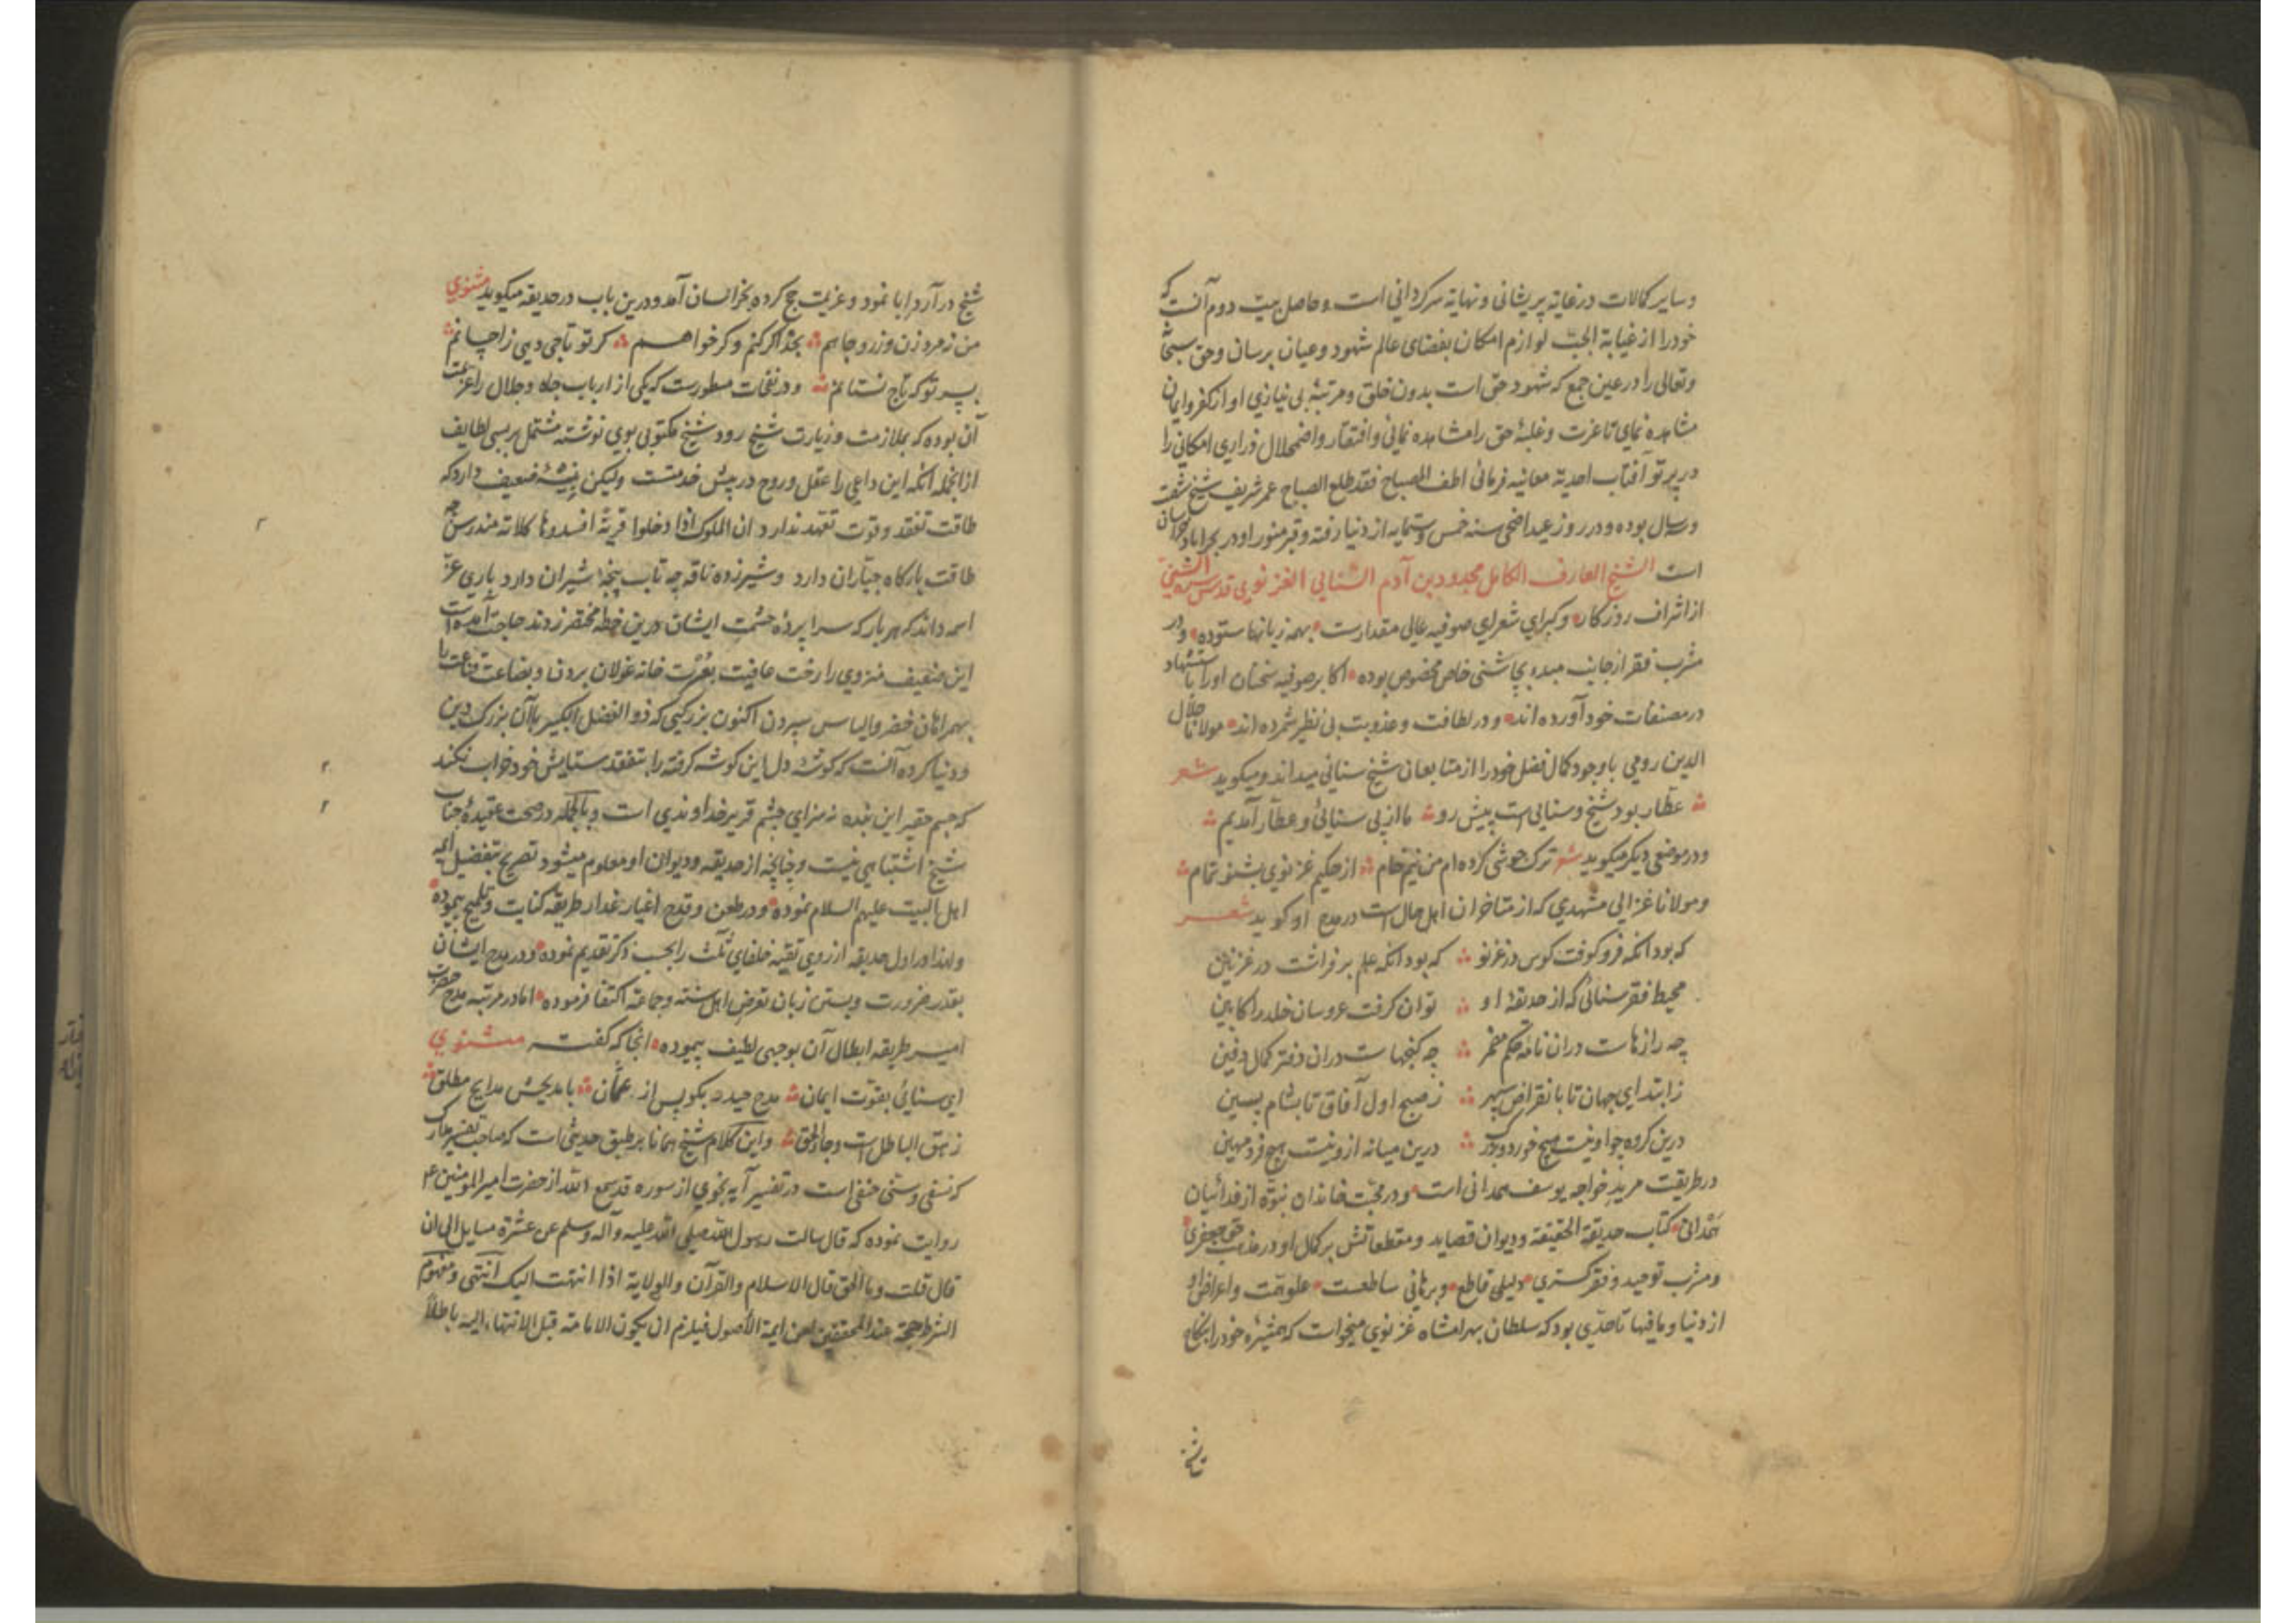 وسایر کمالات در غایة پریشانی ونهایة سرکردانی است وحاصل بیت دوم آنست که
خود را از غیابة الجب لوازم امکان بفضای عالم شهود وعیان برسان وحق سبحانه
وتعالی را در عین جمع که شهود حق است بدون خلق ومرتبهٔ بی نیازی او از کفر وایمان
مشاهده نمای تا عزت وغلبهٔ حق را مشاهده نمائی وافتقار واضمحلال ذراری امکانی را
در پرتو آفتاب احدیة معاینه فرمائی اطف المصباح فقد طلع الصباح عمر شریف شیخ شصت
وسال بوده ودر روز عید اضحی سنه خمس وستمایه از دنیا رفته وقبر منور او در بحراباد خراسان
است الشیخ العارف الکامل مجدود بن آدم السنایی الغزنوی قدس سره السنی
از اشراف روزکار وکبرای شعرای صوفیه عالی مقدارست بهمه زبانها ستوده ودر
مشرب فقر از جانب مبدء بچاشنی خاص مخصوص بوده اکابر صوفیه سخنان او را باستشهاد
در مصنفات خود آورده اند ودر لطافت وعذوبت بی نظیر شمرده اند مولانا جلال
الدین رومی با وجود کمال فضل خود را از متابعان شیخ سنائی میداند ومیکوید شعر
عطّار بود شیخ وسنایی است پیش رو ما از پی سنائی وعطّار آمدیم
ودر موضعی دیکر میکوید شعر ترک جوشی کرده ام من نیم خام از حکیم غزنوی بشنو تمام
ومولانا غزالی مشهدی که از متاخران اهل حال است در مدح او کوید شعر
که بود انکه فرو کوفت کوس در غزنو که بود انکه علم بر فراشت در غزنین
محیط فقر سنائی که از حدیقهٔ او توان کرفت عروسان خلد را کابین
چه رازهاست در ان نامهٔ حکم مضمر چه کنجهاست در ان دفتر کمال دفین
ز ابتدای جهان تا بانقراض سپهر ز صبح اول آفاق تا بشام پسین
درین کروه چو او نیست هیچ خورد وبزرک درین میانه ازو نیست هیچ فرد مهین
در طریقت مرید خواجه یوسف همدانی است ودر محبّت خاندان نبوّه از فدائیان
همدانی کتاب حدیقة الحقیقة ودیوان قصاید ومقطعاتش بر کمال او در مذهب حق جعفری
ومشرب توحید وفقر کستری دلیلی قاطع وبرهانی ساطعست علو همّت واعراض او
از دنیا وما فیها تا حدّی بود که سلطان بهرامشاه غزنوی میخواست که همشیرهٔ خود را بنکاح
شیخ در آرد ابا نمود وعزیمت حج کرده بخراسان آمد ودرین باب در حدیقه میکوید مثنوی
من نه مرد زن وزر وجاهم بخدا کر کنم وکر خواهم کر تو تاجی دهی ز احسانم
بسر تو که تاج نستانم ودر نفحات مسطورست که یکی از ارباب جاه وجلال را عزیمت
آن بوده که بملازمت وزیارت شیخ رود شیخ مکتوبی بوی نوشته مشتمل بر بسی لطایف
از انجمله انکه این داعی را عقل وروح در پیش خدمتست ولیکن بنیهٔ ضعیف دارد که
طاقت تفقد وقوت تعهد ندارد ان الملوک اذا دخلوا قریة افسدوها کلاتهٔ مندرس چه
طاقت بارکاه جبّاران دارد وشیر زده ناقه چه تاب پنجهٔ شیران دارد باری عزّ
اسمه داند که هر بار که سراپردهٔ حشمت ایشان درین خطهٔ مختصر زدند حاجت آمدست
این ضعیف منزوی را رخت عافیت بعُزلت خانهٔ غولان بردن وبضاعت قناعت را
بهمراهان خضر والیاس سپردن اکنون بزرکیی که ذو الفضل الکبیر با آن بزرک دین
ودنیا کرده آنست که کوشهٔ دل این کوشه کرفته را بتفقد ستایش خود خراب نکند
که جسم حقیر این بنده نه سزای چشم قریر خداوندی است وبالجمله در صحت عقیدهٔ جناب
شیخ اشتباهی نیست وچنانچه از حدیقه ودیوان او معلوم میشود تصریح بتفضیل ایمه
اهل البیت علیهم السلام نموده ودر طعن وقدح اغیار غدار طریقه کنایت وتلمیح پیموده
ولهذا در اول حدیقه از روی تقیّه خلفای ثلث را بحسب ذکر تقدیم نموده ودر مدح ایشان
بقدر ضرورت وبستن زبان تعرض اهل سنّة وجماعة اکتفا فرموده اما در مرتبه مدح حضرت
امیر طریقه ابطال آن بوجهی لطیف پیموده انجا که کفته مثنوی
ای سنائی بقوّت ایمان مدح حیدر بکو پس از عثمان با مدیحش مدایح مطلق
زهق الباطل است وجاء الحق واین کلام شیخ همانا بر طبق حدیثی است که صاحب تفسیر مدارک
که نسفی وسنّی حنفی است در تفسیر آیه نجوی از سوره قد سمع الله از حضرت امیر المومنین ع
روایت نموده که قال سالت رسول الله صلی الله علیه وآله وسلم عن عشرة مسایل الی ان
قال قلت وما الحق قال الاسلام والقرآن والولایة اذا انتهت الیک انتهی ومفهوم
الشرط حجّة عند المحققین من ایمة الاصول فیلزم ان یکون الامامة قبل الانتهاء الیه باطلاً